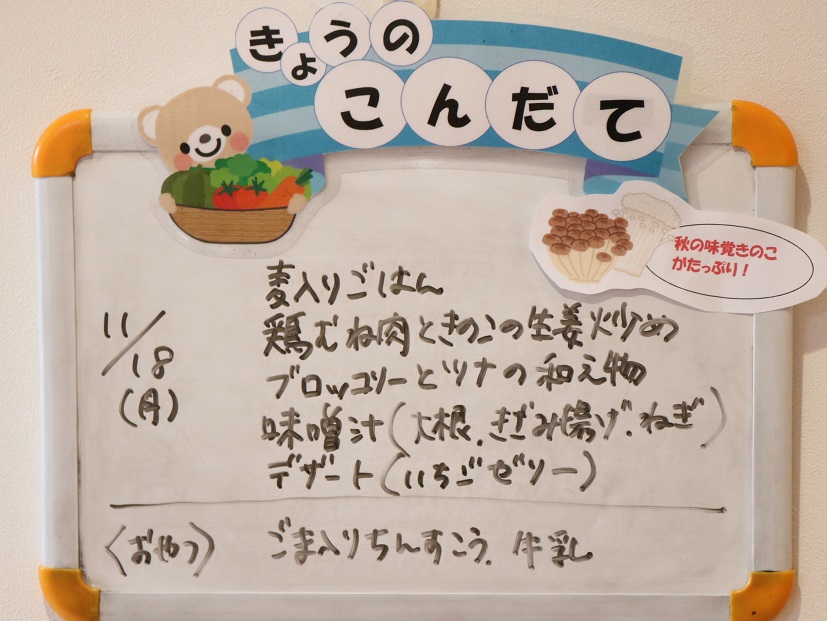 きょうの
こんだて
秋の味覚きのこ
がたっぷり！
11/18
(月)
麦入りごはん
鶏むね肉ときのこの生姜炒め
ブロッコリーとツナの和え物
味噌汁(大根.きざみ揚げ.ねぎ)
デザート(いちごゼリー)
〈おやつ〉 ごま入りちんすこう. 牛乳